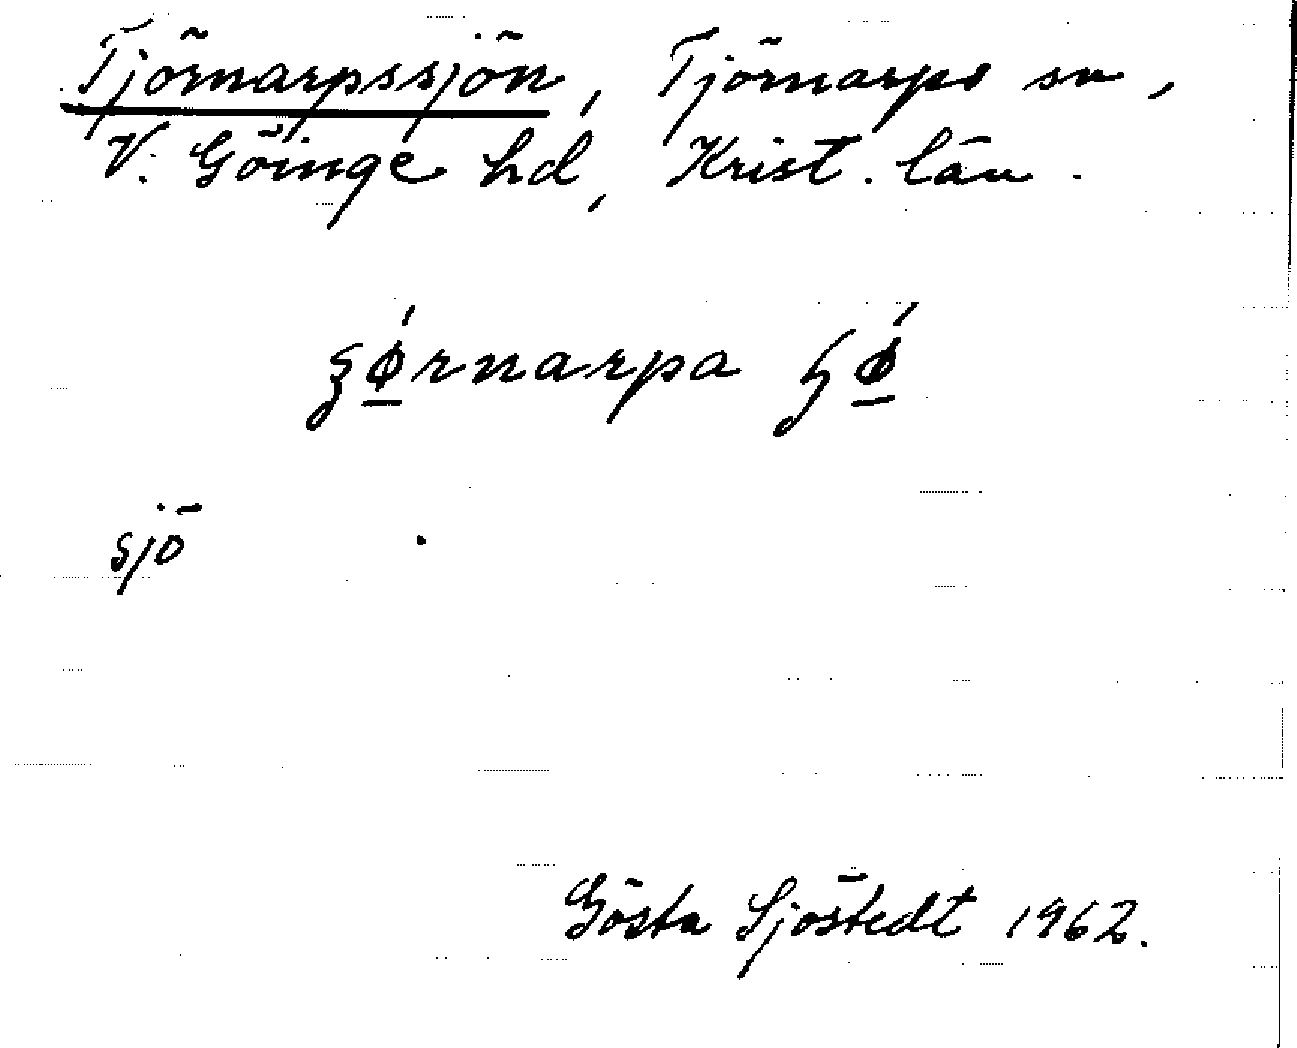 Tjörnarpssjön, Tjörnarps sn,
V. Göinge hd, Krist. län.
ʒǿrnarpa ɧǿ
sjö
Gösta Sjöstedt 1962.